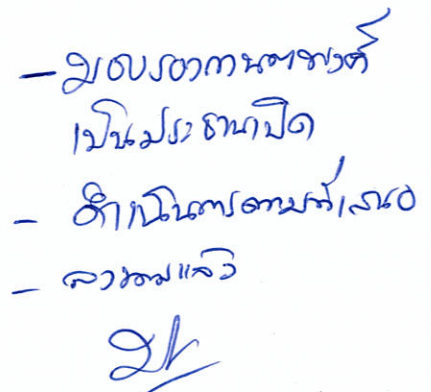 - มอบรองกานตพงศ์
เป็นประธานเปิด
- ดำเนินการตามที่เสนอ
- ลงนามแล้ว